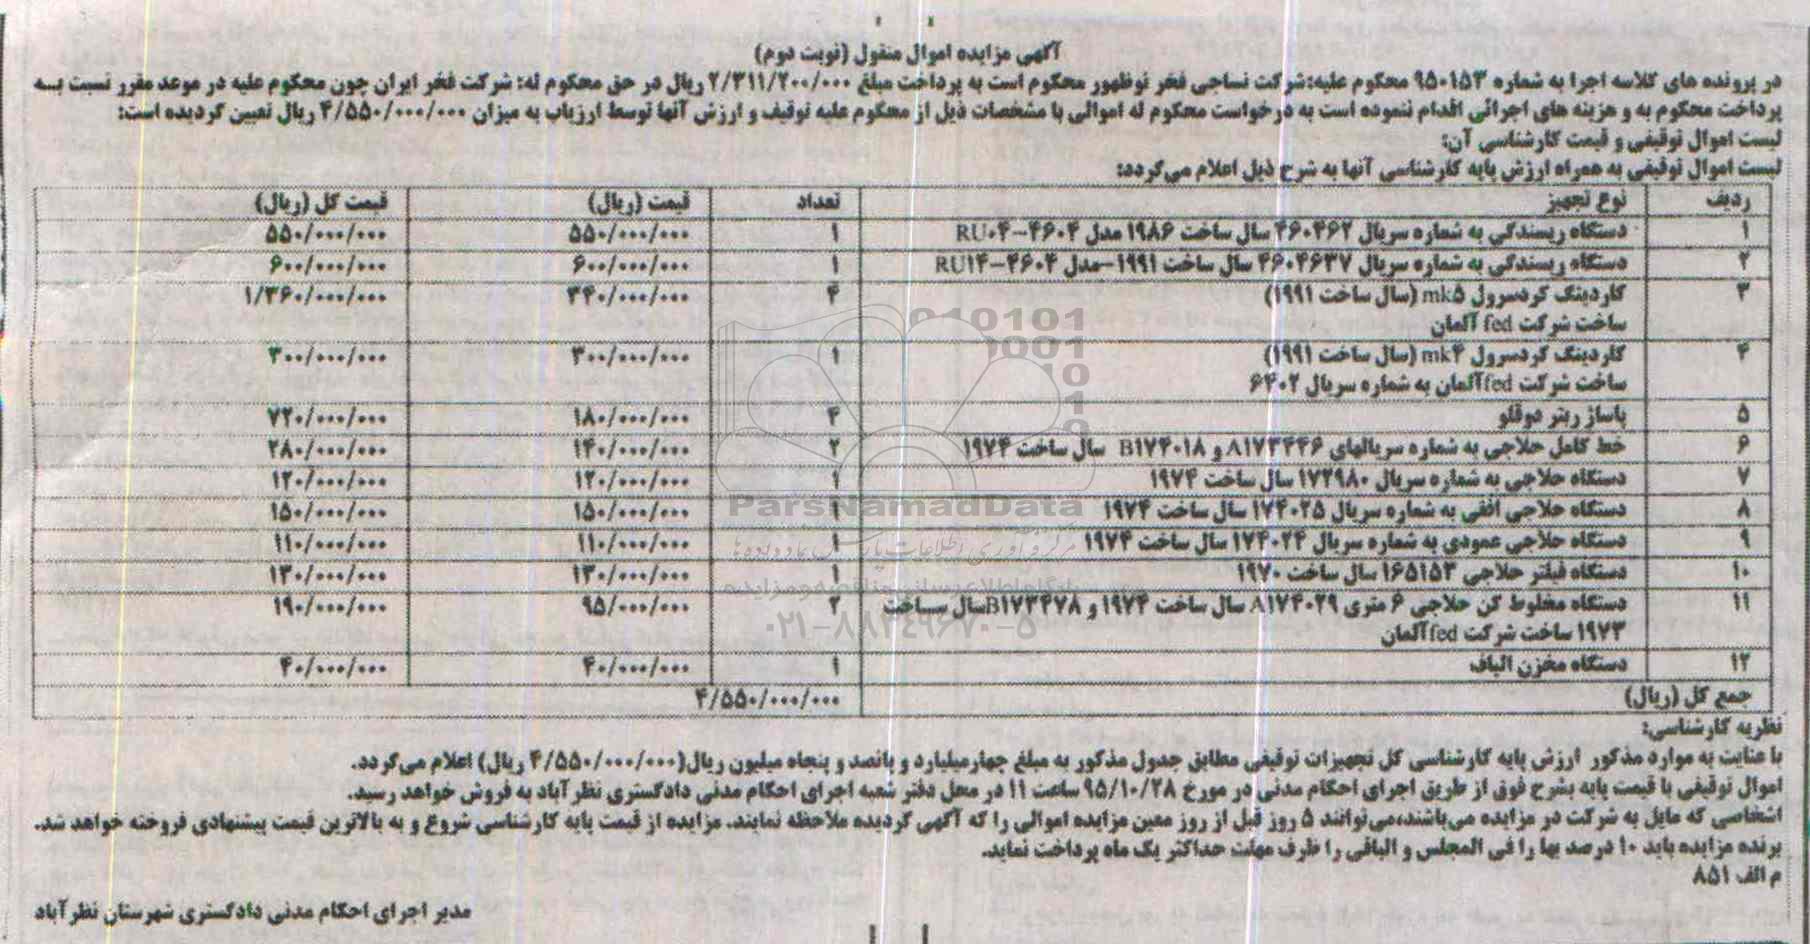 آگهی مزایده اموال منقول (نوبت دوم)
در پرونده های کلاسه اجرا به شماره ۹۵۰۱۵۳ محکوم علیه:شرکت نساجی فخر نوظهور محکوم است به پرداخت مبلغ ۲/۳۱۱/۲۰۰/۰۰۰ ریال در حق محکوم له: شرکت فخر ایران چون محکوم علیه در موعد مقرر نسبت بـه
پرداخت محکوم به و هزینه های اجرائی اقدام ننموده است به درخواست محکوم له اموالی با مشخصات ذیل از محکوم علیه توقیف و ارزش آنها توسط ارزیاب به میزان ۴/۵۵۰/۰۰۰/۰۰۰ ریال تعیین گردیده است:
لیست اموال توقیفی و قیمت کارشناسی آن:
لیست اموال توقیفی به همراه ارزش پایه کارشناسی آنها به شرح ذیل اعلام می‌گردد:
ردیف نوع تجهیز تعداد قیمت (ریال) قیمت کل (ریال)
۱ دستگاه ریسندگی به شماره سریال ۴۶۰۴۶۲ سال ساخت ۱۹۸۶ مدل RU۰۴-۴۶۰۴ ۱ ۵۵۰/۰۰۰/۰۰۰ ۵۵۰/۰۰۰/۰۰۰
۲ دستگاه ریسندگی به شماره سریال ۴۶۰۴۶۳۷ سال ساخت ۱۹۹۱-مدل RU۱۴-۴۶۰۴ ۱ ۶۰۰/۰۰۰/۰۰۰ ۶۰۰/۰۰۰/۰۰۰
۳ کاردینگ کردسرول mk۵ (سال ساخت ۱۹۹۱) ۴ ۳۴۰/۰۰۰/۰۰۰ ۱/۳۶۰/۰۰۰/۰۰۰
ساخت شرکت fed آلمان
۴ کاردینگ کردسرول mk۴ (سال ساخت ۱۹۹۱) ۱ ۳۰۰/۰۰۰/۰۰۰ ۳۰۰/۰۰۰/۰۰۰
ساخت شرکت fedآلمان به شماره سریال ۶۴۰۲
۵ پاساژ ریتر دوقلو ۴ ۱۸۰/۰۰۰/۰۰۰ ۷۲۰/۰۰۰/۰۰۰
۶ خط کامل حلاجی به شماره سریالهای A۱۷۳۴۴۶ و B۱۷۴۰۱۸ سال ساخت ۱۹۷۴ ۲ ۱۴۰/۰۰۰/۰۰۰ ۲۸۰/۰۰۰/۰۰۰
۷ دستگاه حلاجی به شماره سریال ۱۷۲۹۸۰ سال ساخت ۱۹۷۴ ۱ ۱۲۰/۰۰۰/۰۰۰ ۱۲۰/۰۰۰/۰۰۰
۸ دستگاه حلاجی افقی به شماره سریال ۱۷۴۰۲۵ سال ساخت ۱۹۷۴ ۱ ۱۵۰/۰۰۰/۰۰۰ ۱۵۰/۰۰۰/۰۰۰
۹ دستگاه حلاجی عمودی به شماره سریال ۱۷۴۰۲۴ سال ساخت ۱۹۷۴ ۱ ۱۱۰/۰۰۰/۰۰۰ ۱۱۰/۰۰۰/۰۰۰
۱۰ دستگاه فیلتر حلاجی ۱۶۵۱۵۳ سال ساخت ۱۹۷۰ ۱ ۱۳۰/۰۰۰/۰۰۰ ۱۳۰/۰۰۰/۰۰۰
۱۱ دستگاه مخلوط کن حلاجی ۶ متری A۱۷۴۰۲۹ سال ساخت ۱۹۷۴ و B۱۷۳۴۷۸سال سـاخت ۲ ۹۵/۰۰۰/۰۰۰ ۱۹۰/۰۰۰/۰۰۰
۱۹۷۳ ساخت شرکت fedآلمان
۱۲ دستگاه مخزن الیاف ۱ ۴۰/۰۰۰/۰۰۰ ۴۰/۰۰۰/۰۰۰
جمع کل (ریال) ۴/۵۵۰/۰۰۰/۰۰۰
نظریه کارشناسی:
با عنایت به موارد مذکور ارزش پایه کارشناسی کل تجهیزات توقیفی مطابق جدول مذکور به مبلغ چهارمیلیارد و پانصد و پنجاه میلیون ریال(۴/۵۵۰/۰۰۰/۰۰۰ ریال) اعلام می‌گردد.
اموال توقیفی با قیمت پایه بشرح فوق از طریق اجرای احکام مدنی در مورخ ۹۵/۱۰/۲۸ ساعت ۱۱ در محل دفتر شعبه اجرای احکام مدنی دادگستری نظرآباد به فروش خواهد رسید.
اشخاصی که مایل به شرکت در مزایده می‌باشند،می‌توانند ۵ روز قبل از روز معین مزایده اموالی را که آگهی گردیده ملاحظه نمایند. مزایده از قیمت پایه کارشناسی شروع و به بالاترین قیمت پیشنهادی فروخته خواهد شد.
برنده مزایده باید ۱۰ درصد بها را فی المجلس و الباقی را ظرف مهلت حداکثر یک ماه پرداخت نماید.
م الف ۸۵۱
مدیر اجرای احکام مدنی دادگستری شهرستان نظرآباد
ParsNamadData
۰۲۱-۸۸۳۴۹۶۷۰-۵